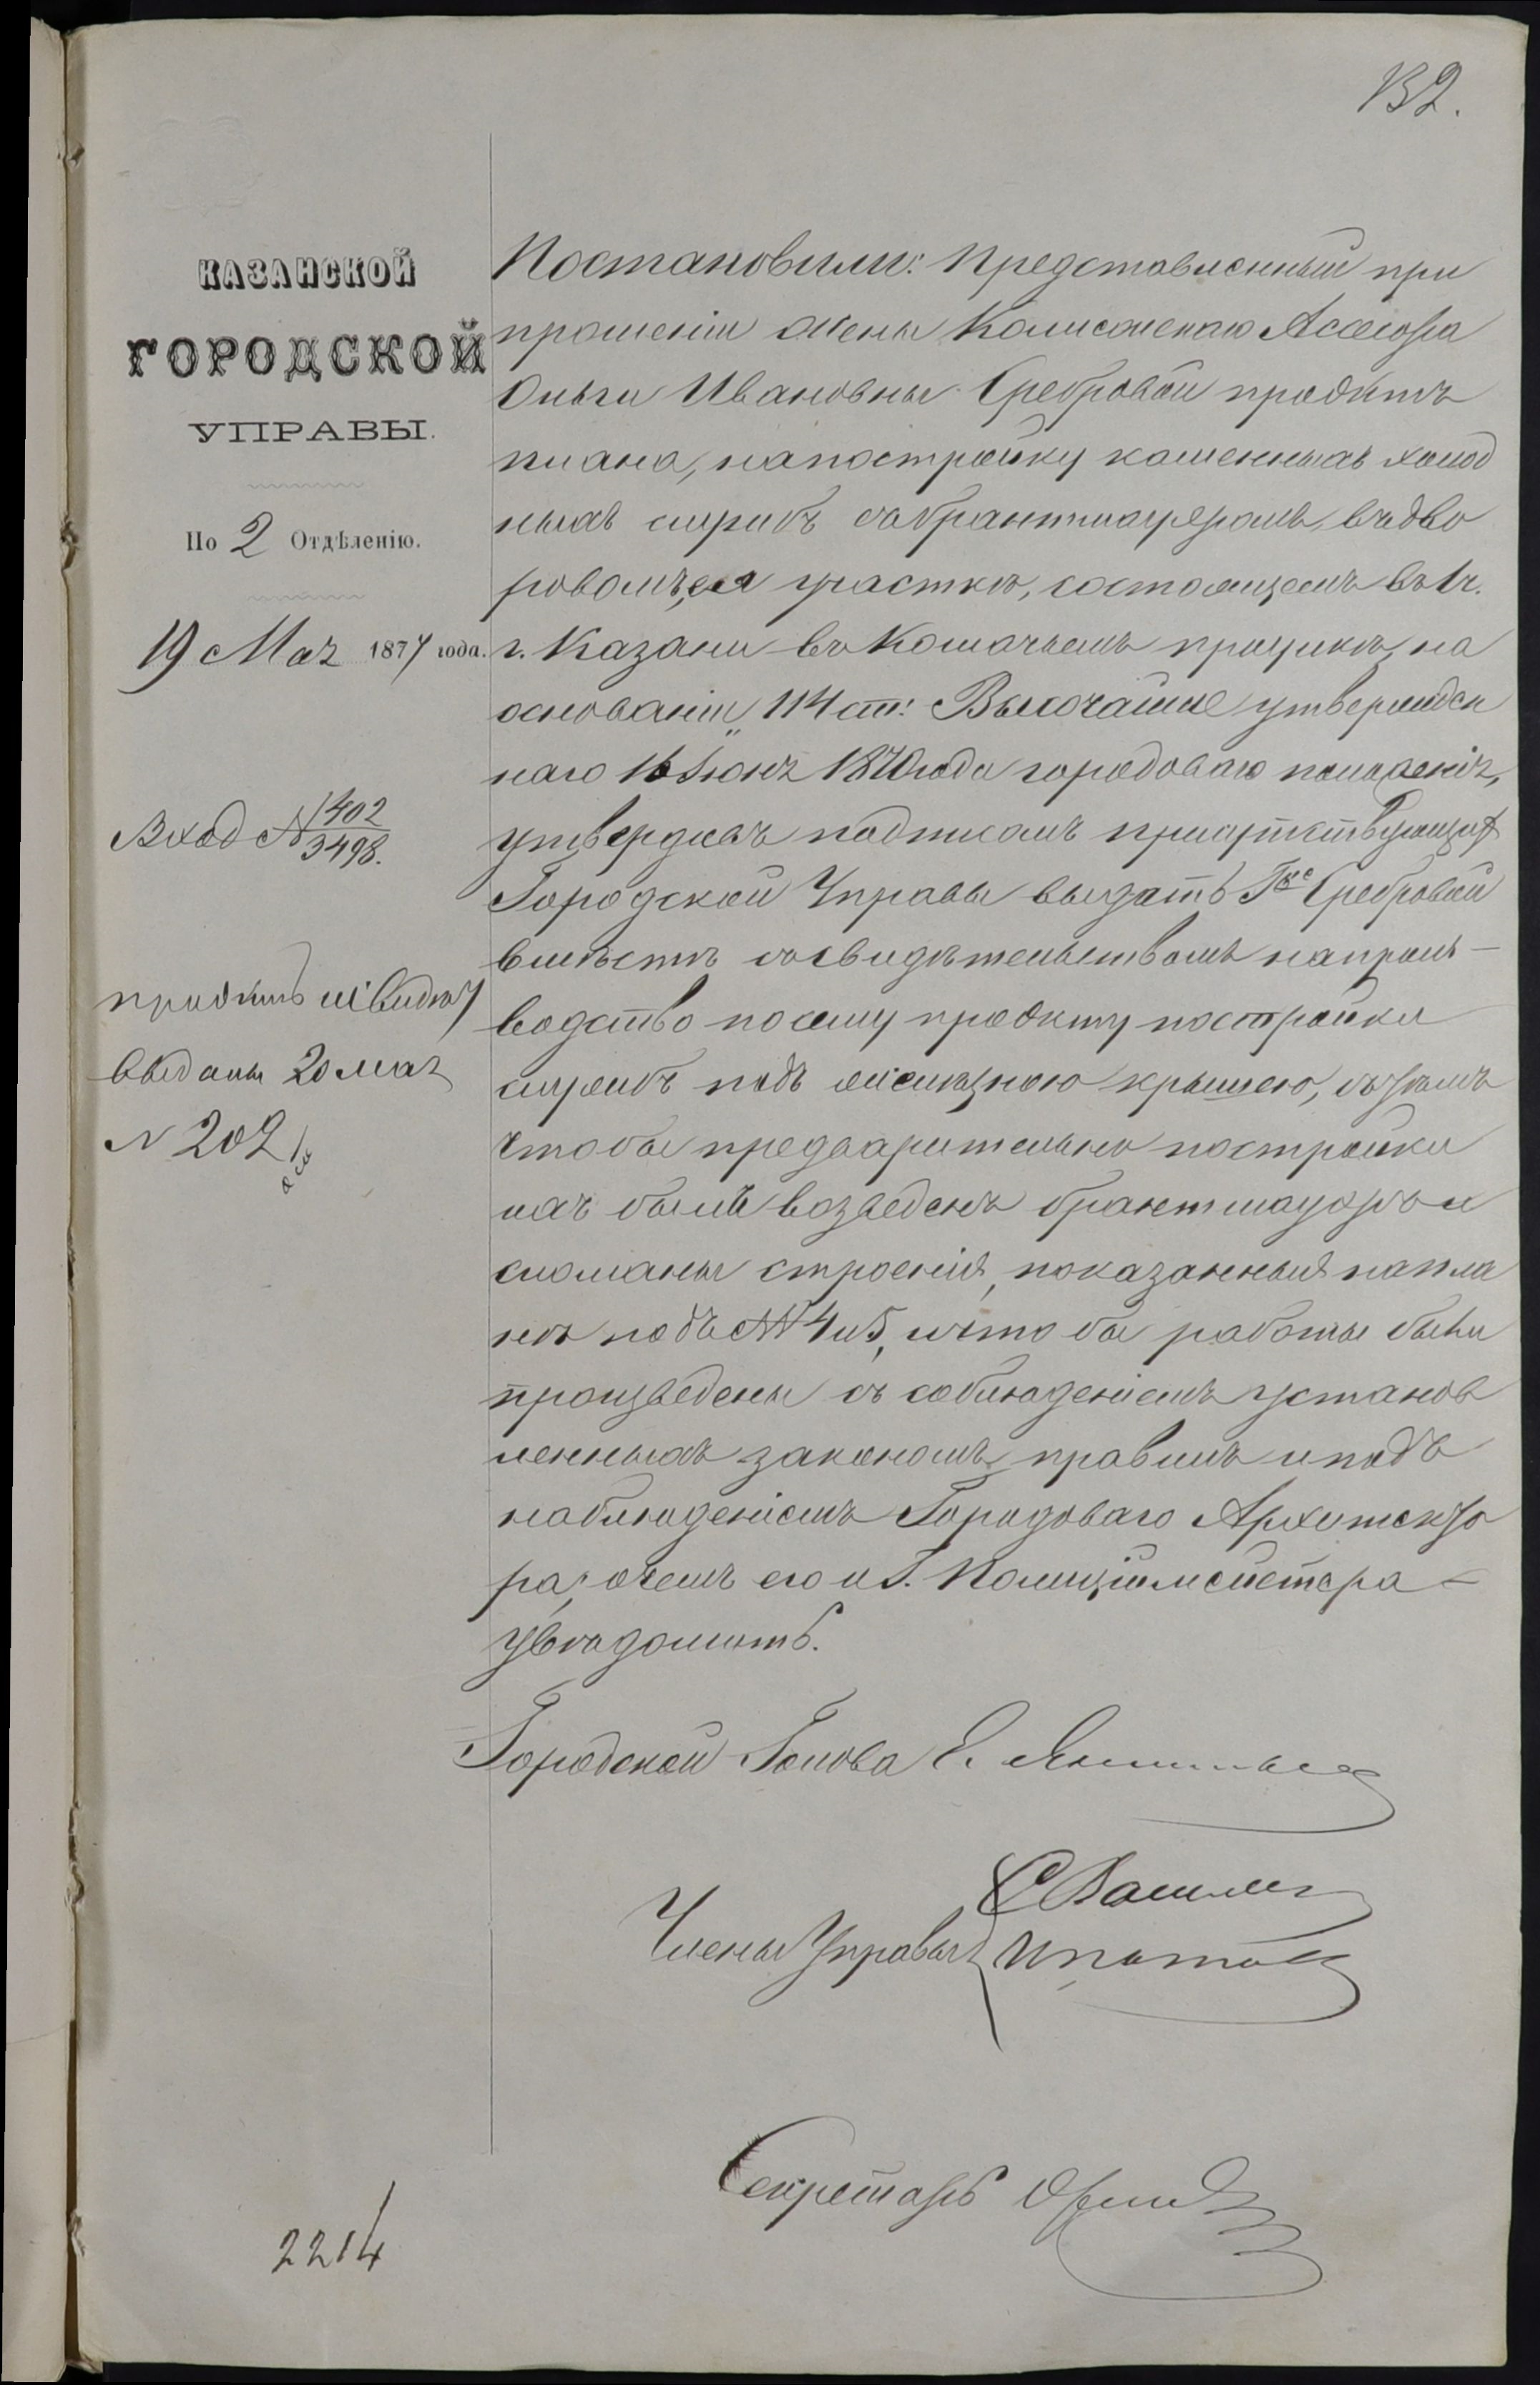 132.
КАЗАНСКОЙ
ГОРОДСКОЙ
УПРАВЫ.
По 2 Отдѣленію.
19 Мая 1877 года.
Вход № 1402
3498.
проэктъ и свид. №
выданы 20 мая
№ 202
2214
Постановили: Представленный при
прошеніи жены Колежскаго Ассесора
Ольги Ивановны Сребровой проэктъ
плана, на постройку каменныхъ холод
ныхъ службъ съ брантмауэромъ, въ дво
ровомъ ея участкѣ, состоящемъ въ 1 ч.
г. Казани въ Кошачьемъ проулкѣ, на
основаніи 114 ст: Высочайше утвержден
наго 16 Іюня 1870 года городоваго положенія,
утвердивъ подписомъ присутствующихъ
Городской Управы выдать Г-жѣ Сребровой
вмѣстѣ со свидѣтельствомъ на произ-
водство по сему проэкту постройки
службъ подъ желѣзною крышею, съ тѣмъ
чтобы предварительно постройки
ихъ былъ возведенъ брантмауэръ и
сломаны строенія, показанныя на пла
нѣ подъ №№ 4 и 5, и что бы работы были
произведены съ соблюденіемъ установ
ленныхъ закономъ правилъ и подъ
наблюденіемъ Городоваго Архитекто
ра, о чемъ его и Г. Полиціймейстера
увѣдомить.
Городской Голова Е.
Члены Управы
Ипатовъ
Секретарь